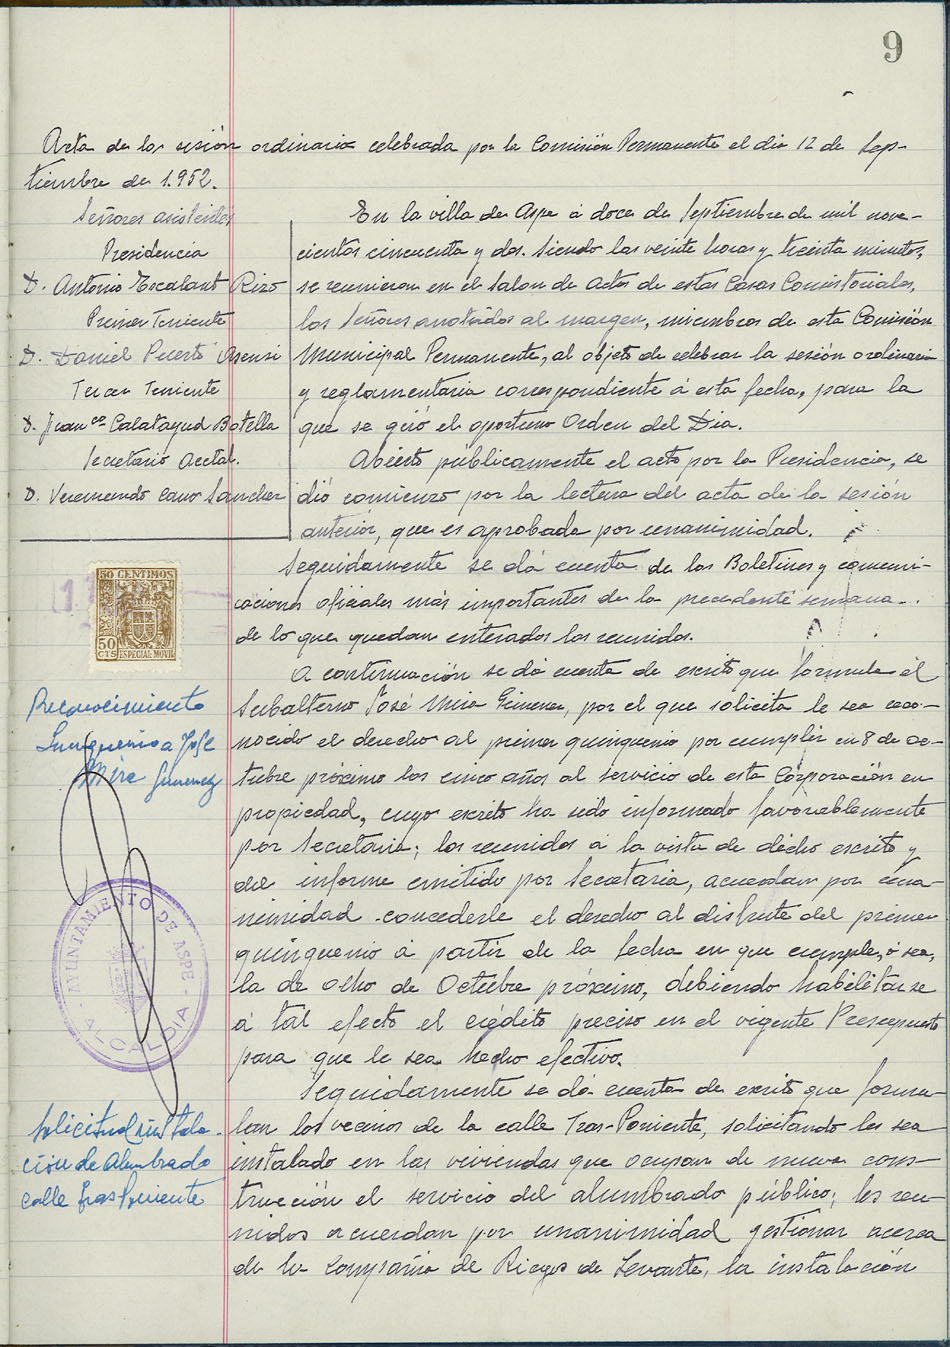 9
Acta de la sesión ordinaria celebrada por la Comisión Permanente el dia 12 de Sep-
tiembre de 1.952.
Señores asistentes
Presidencia
D. Antonio Escalant Rizo
Primer Teniente
D. Daniel Puerto Asensi
Tercer Teniente
D. Juan Calatayud Botella
Secretario Acctal.
D. Veremundo Cano Sanchez
En la villa de Aspe á doce de Septiembre de mil nove-
cientos cincuenta y dos. Siendo las veinte horas y treinta minutos,
se reunieron en el salon de actos de estas Casas Consistoriales,
los Señores anotados al margen, miembros de esta Comisión
Municipal Permanente, al objeto de celebrar la sesión ordinaria
y reglamentaria correspondiente á esta fecha, para la
que se giró el oportuno Orden del Dia.
Abierto públicamente el acto por la Presidencia, se
dió comienzo por la lectura del acta de la sesión
anterior, que es aprobada por unanimidad.
Seguidamente se dá cuenta de los Boletines y comuni-
caciones oficiales más importantes de la precedente semana.
de lo que quedan enterados los reunidos.
A continuación se dá cuenta de escrito que formula el
Subalterno José Mira Gimenez, por el que solicita le sea reco-
nocido el derecho al primer quinquenio por cumplir en 8 de Oc-
tubre próximo los cinco años al servicio de esta Corporación en
propiedad, cuyo escrito ha sido informado favorablemente
por Secretaria; los reunidos á la vista de dicho escrito y
del informe emitido por Secretaria, acuerdan por una-
nimidad concederle el derecho al disfrute del primer
quinquenio á partir de la fecha en que cumple, ó sea,
la de ocho de Octubre próximo, debiendo habilitarse
á tal efecto el crédito preciso en el vigente Presupuesto
para que le sea hecho efectivo.
Seguidamente se dá cuenta de escrito que formu-
lan los vecinos de la calle Tras-Poniente, solicitando les sea
instalado en las viviendas que ocupan de nueva cons-
trucción el servicio del alumbrado público; los reu-
nidos acuerdan por unanimidad gestionar acerca
de la Compañia de Riegos de Levante, la instalación
50 CENTIMOS
50 CTS
ESPECIAL MOVIL
Reconocimiento
quinquenio a José
Mira Gimenez
AYUNTAMIENTO DE ASPE
ALCALDIA
Solicitud instala-
ción de Alumbrado
calle Tras Poniente